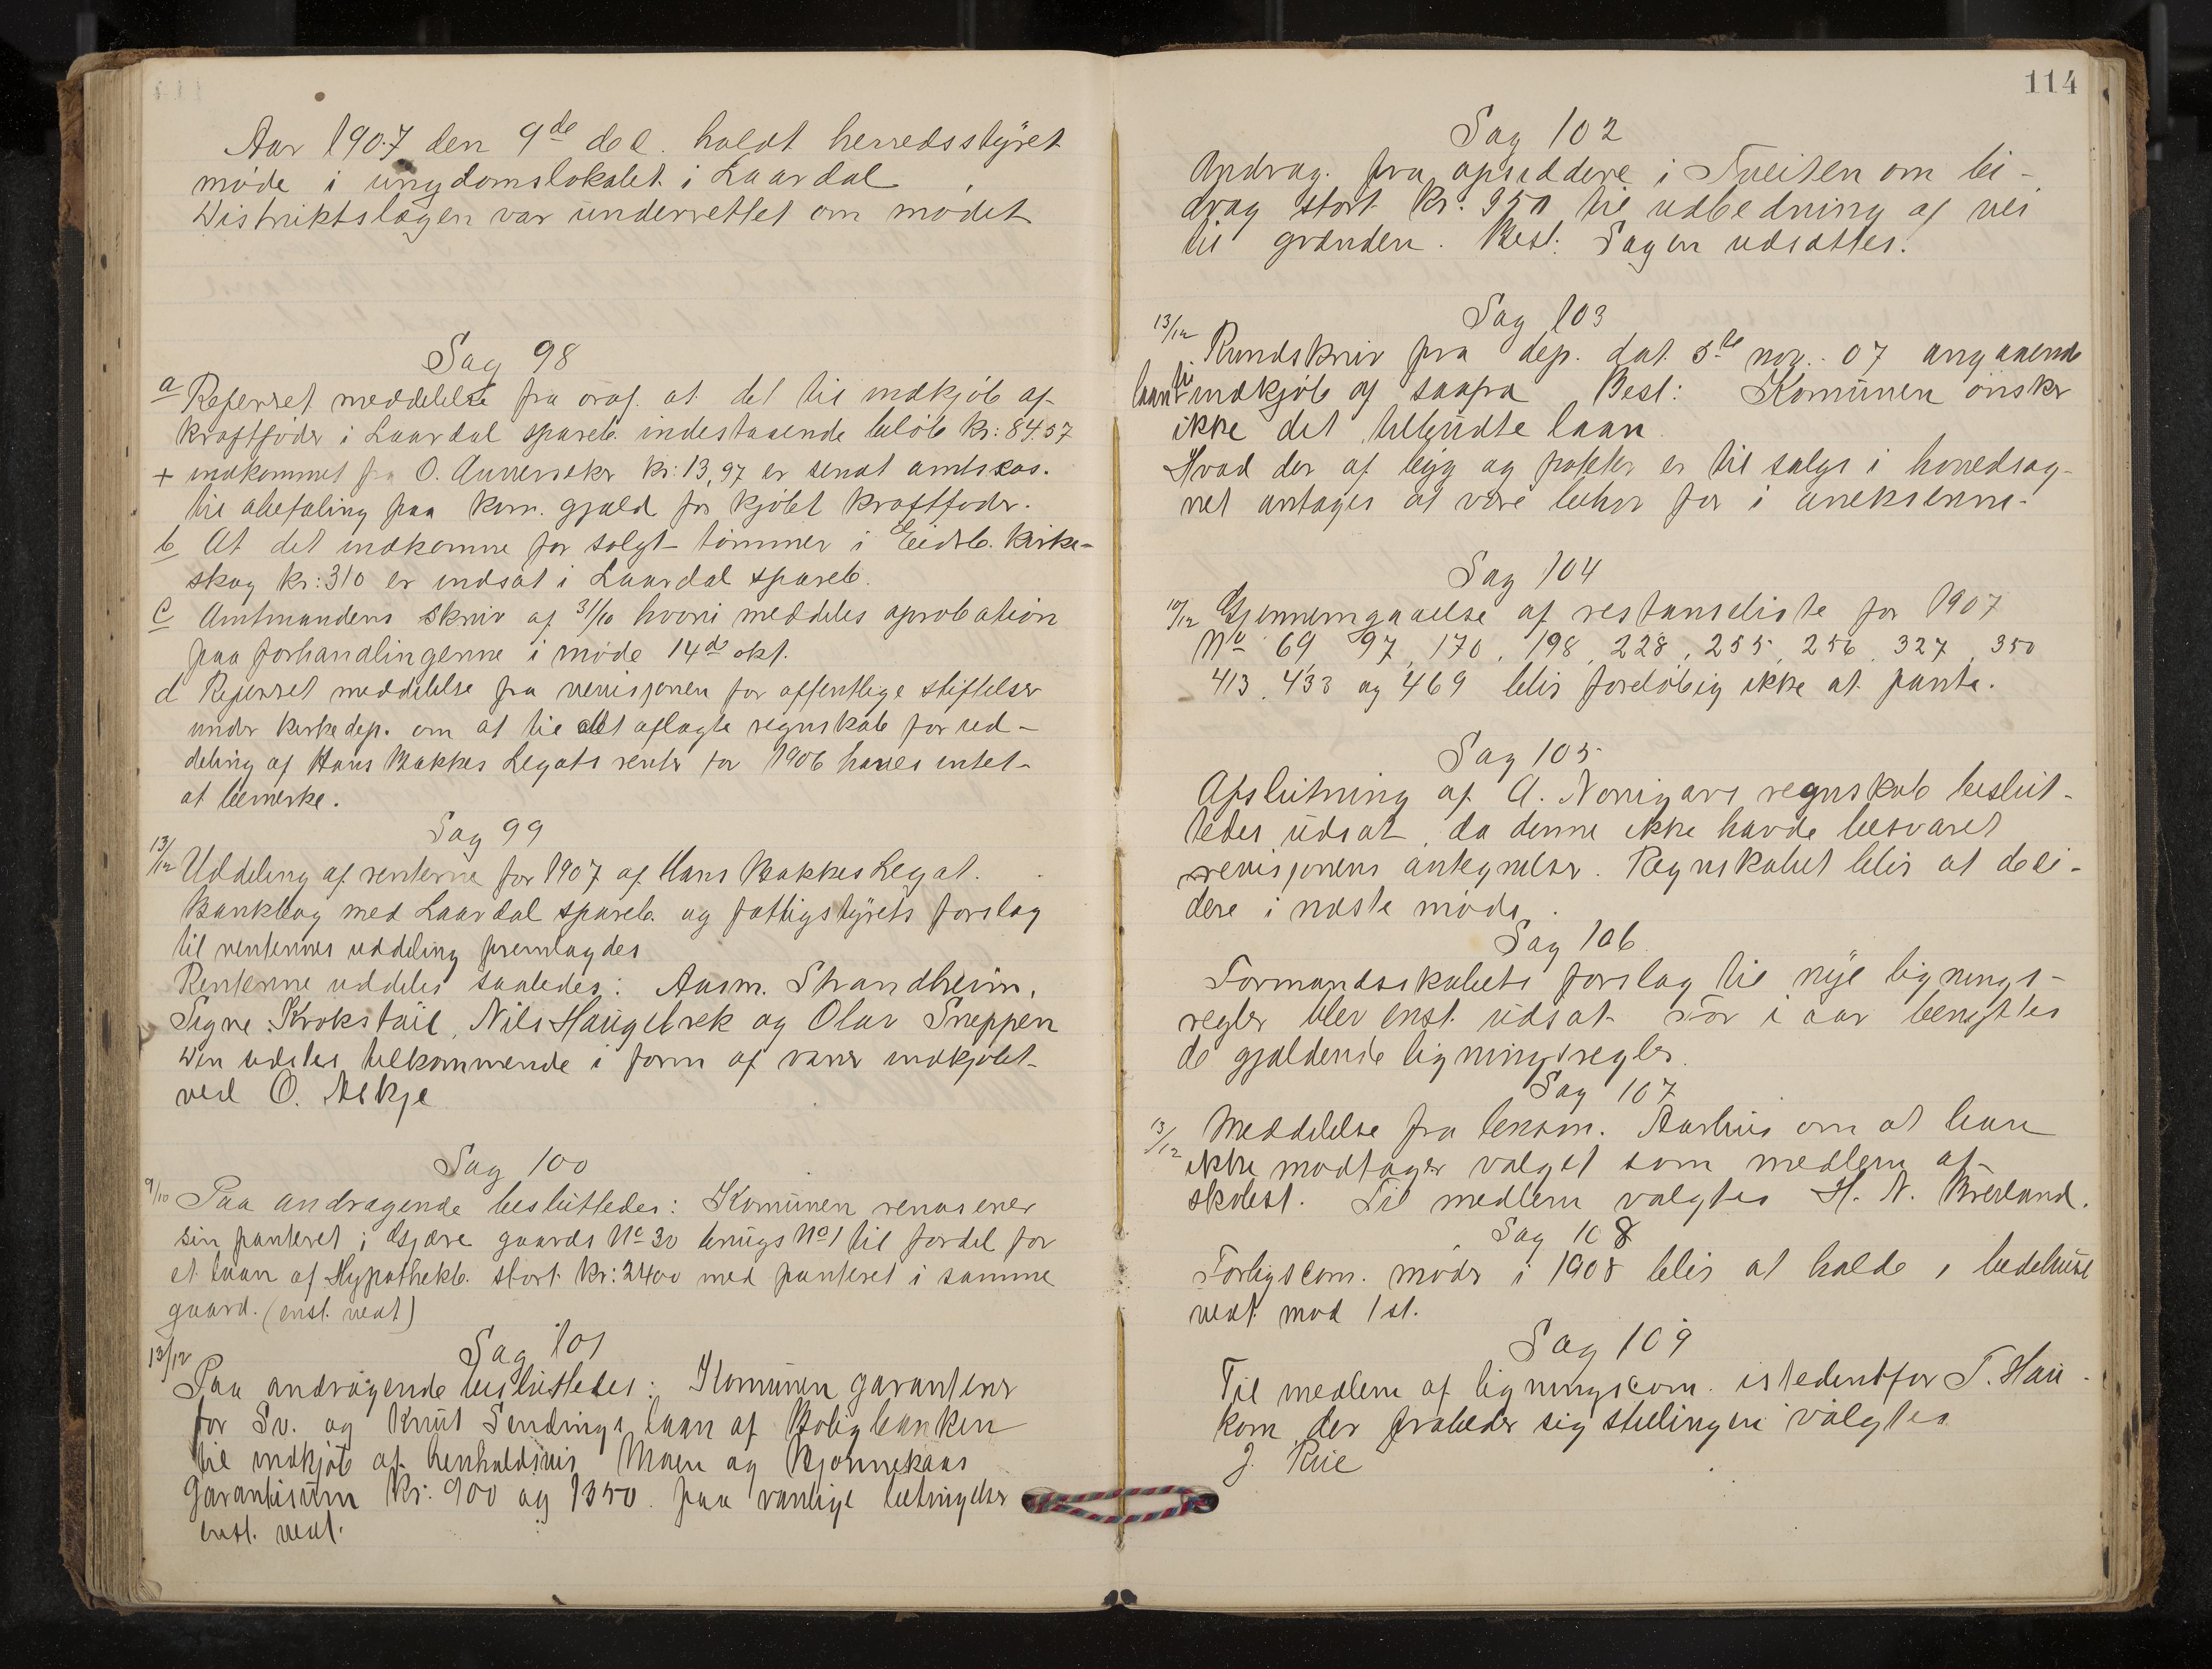 Aar 1907 den 9de dec. holdt herredsstyret
møde i ungdomslokalet i Laardal
Distriktslægen var underrettet om mødet
Sag 98
a Referert meddelelse fra ordf. at det til indkjøb af
kraftfoder i Laardal spareb. indestaaende beløb kr: 84.57
+ indkommet fra O. kr: 13,97 er sendt amtskas.
til abetaling paa kom. gjæld for kjøbt kraftfoder.
b At det indkomne for solgt tømmer i Eidsb. kirke-
skog kr: 310 er indsat i Laardal spareb.
c Amtmandens skriv af 31/10 hvori meddeles aprobation
paa forhandlingerne i møde 14de okt.
d Referert meddelelse fra revisjonen for offentlige stiftelser
under kirkedep. om at til det aflagte regnskab for ud-
deling af Hans Bakkes Legats renter for 1906 haves intet
at bemerke.
Sag 99
13/12 Uddeling af renterne for 1907 af Hans Bakkes Legat.
Bankbog med Laardal spareb. og fattigstyrets forslag
til renternes uddeling fremlagdes
Renterne uddeles saaledes: Aasm. Strandheim,
Signe Krokstail, Nils Haugebrek og Olav Sneppen
Den udeles tilkommende i form af varer indkjøbt
ved O. Askje
Sag 100
9/10 Paa andragende besluttedes: Komunen
sin panteret i gaards No 30 brugs No 1 til fordel for
et laan af Hypothekb. stort kr: 2400 med panteret i samme
gaard. (enst. vedt)
Sag 101
13/12
Paa andragende besluttedes: Komunen garanterer
for Sv. og Knut Sendings laan af Boligbanken
til indkjøb af henholdsvis Moen og Bjønnekaas
Garantisum kr: 900 og 1350. paa vanlige betingelser
enst. vedt.
114
Sag 102
Andrag. fra opsiddere i Tveiten om bi-
drag stort kr: 350 til udbedring af vei
til grænden. Besl: Sagen udsættes.
Sag 103
13/12 Rundskriv fra dep. dat. 5te nov. 07 angaaende
laan til indkjøb af saafrø Besl: Komunen ønsker
ikke det tilbudte laan
Hvad der af bygg og poteter er til salgs i hovedsog-
net antages at være behov for i aneksenne.
Sag 104
10/12 Gjennemgaaelse af restanseliste for 1907
No 69, 97, 170, 198, 228, 255, 256, 327, 350
413, 433 og 469 blir foreløbig ikke at pante.
Sag 105
Afslutning af A. Norigars regnskab beslut-
tedes udsat, da denne ikke havde besvaret
revisjonens antegnelser. Regnskabet blir at deci-
dere i næste møde.
Sag 106
Formandsskabets forslag til nye lignings-
regler blev enst. udsat. For i aar benyttes
de gjældende ligningsregler.
Sag 107
13/12 Meddelelse fra lensm. Aarhus om at han
ikke modtager valget som medlem af
skolest. Til medlem valgtes H. N. Breland.
Sag 108
Forligscom. møder i 1908 blir at holde i bedehuset
vedt. mod 1 st.
Sag 109
Til medlem af ligningscom. istedentfor T. Hau-
kom der frabeder sig stillingen valgtes
J. Rue